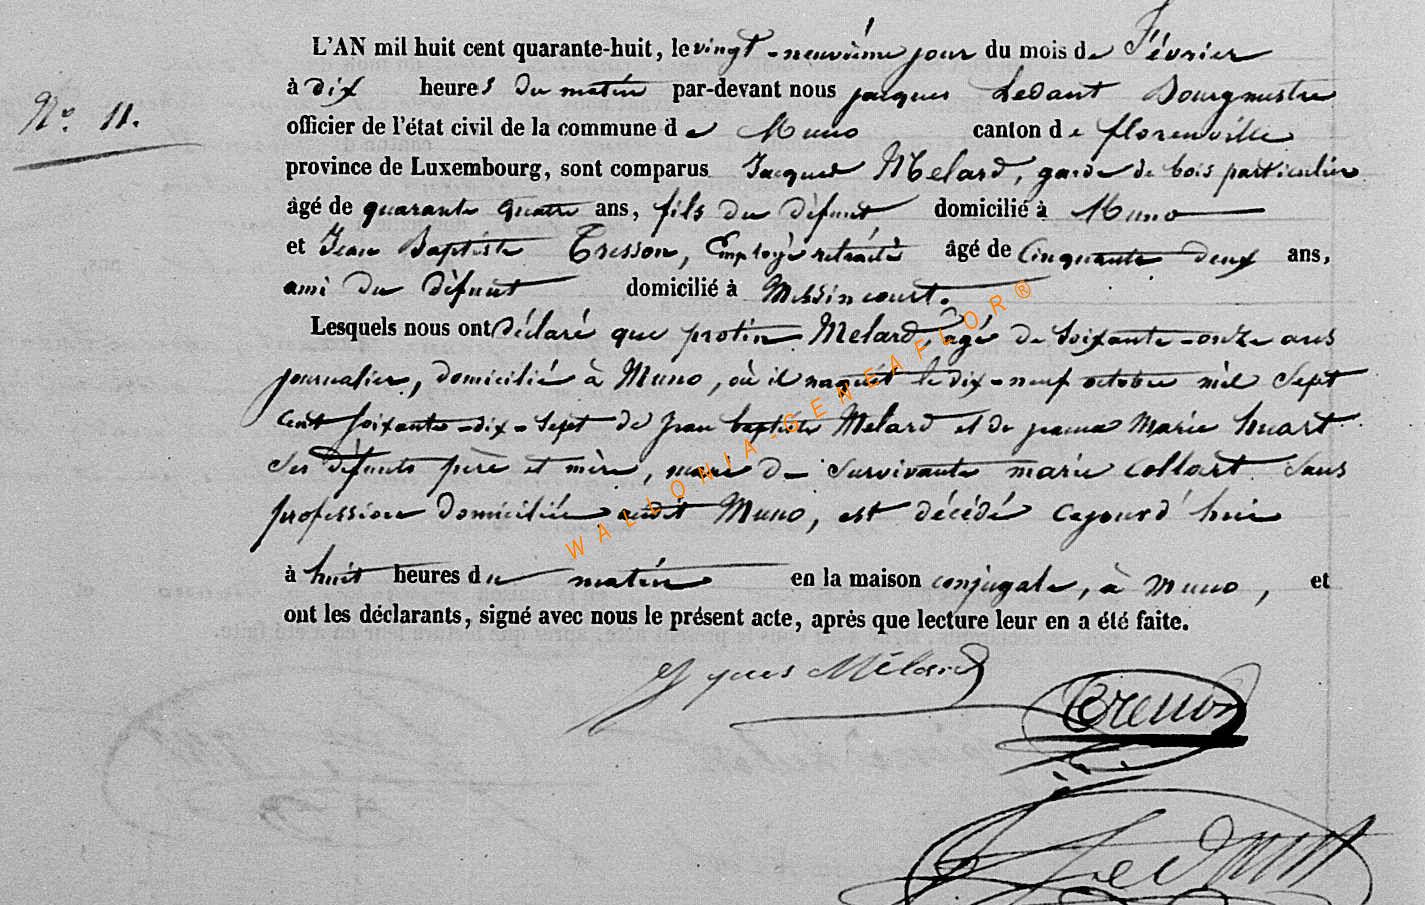 L'AN mil huit cent quarante-huit, le vingt-neuvième jour du mois de Février
à dix heures du matin par-devant nous jacques Ledant Bourgmestre
N.° 11.
officier de l'état civil de la commune de Muno canton de florenville
province de Luxembourg, sont comparus Jacques Melard, garde de bois particulier
âgé de quarante quatre ans, fils du défunt domicilié à Muno
et Jean Baptiste Tresson, Employé retraité âgé de Cinquante deux ans,
ami du défunt domicilié à Messincourt.
Lesquels nous ont déclaré que protin Melard, âgé de soixante-onze ans
journalier, domicilié à Muno, où il naquit le dix-neuf octobre mil sept
cent soixante-dix-sept de jean baptiste Melard et de jeanne Marie huart
ses défunts père et mère, mari de survivante marie collart sans
profession domiciliée audit Muno, est décédé cejourd'hui
WALLONIA-GENEAFLOR®
à huit heures du matin en la maison conjugale, à Muno, et
ont les déclarants, signé avec nous le présent acte, après que lecture leur en a été faite.
Mélard